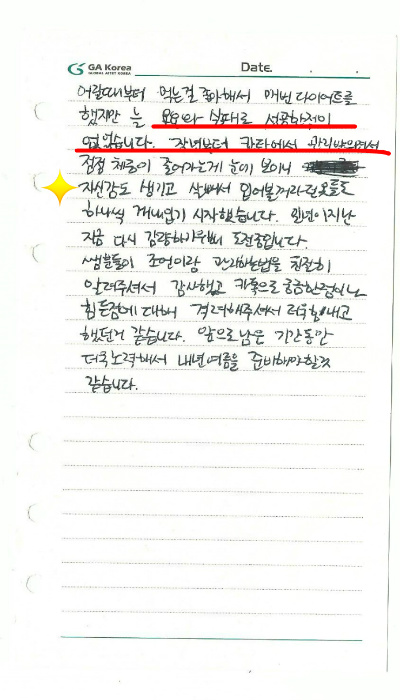 GA Korea
GLOBAL ATIST KOREA
Date.
어릴때부터 먹는걸 좋아해서 매번 다이어트를
했지만 늘 요요와 실패로 성공한적이
없었습니다. 작년부터 칸타에서 관리받으면서
점점 체중이 줄어가는게 눈에 보이니
자신감도 생기고 살빼서 입어볼거라던 옷들도
하나씩 꺼내입기 시작했습니다. 일년이지난
지금 다시 감량하기위해 도전중입니다.
쌤분들이 조언이랑 관리하는법을 친절히
알려주셔서 감사했고 카톡으로 궁금한점이나
힘든점에 대해 격려해주셔서 더욱 힘내고
했던거 같습니다. 앞으로 남은 기간동안
더욱노력해서 내년여름을 준비해야할것
같습니다.